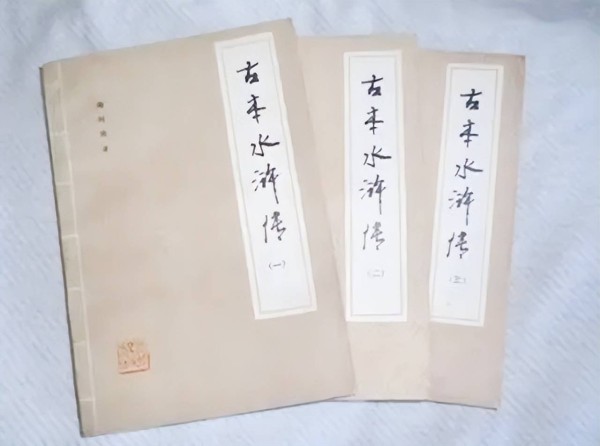 古本水浒传
(一)
古本水浒传
(二)
古本水浒传